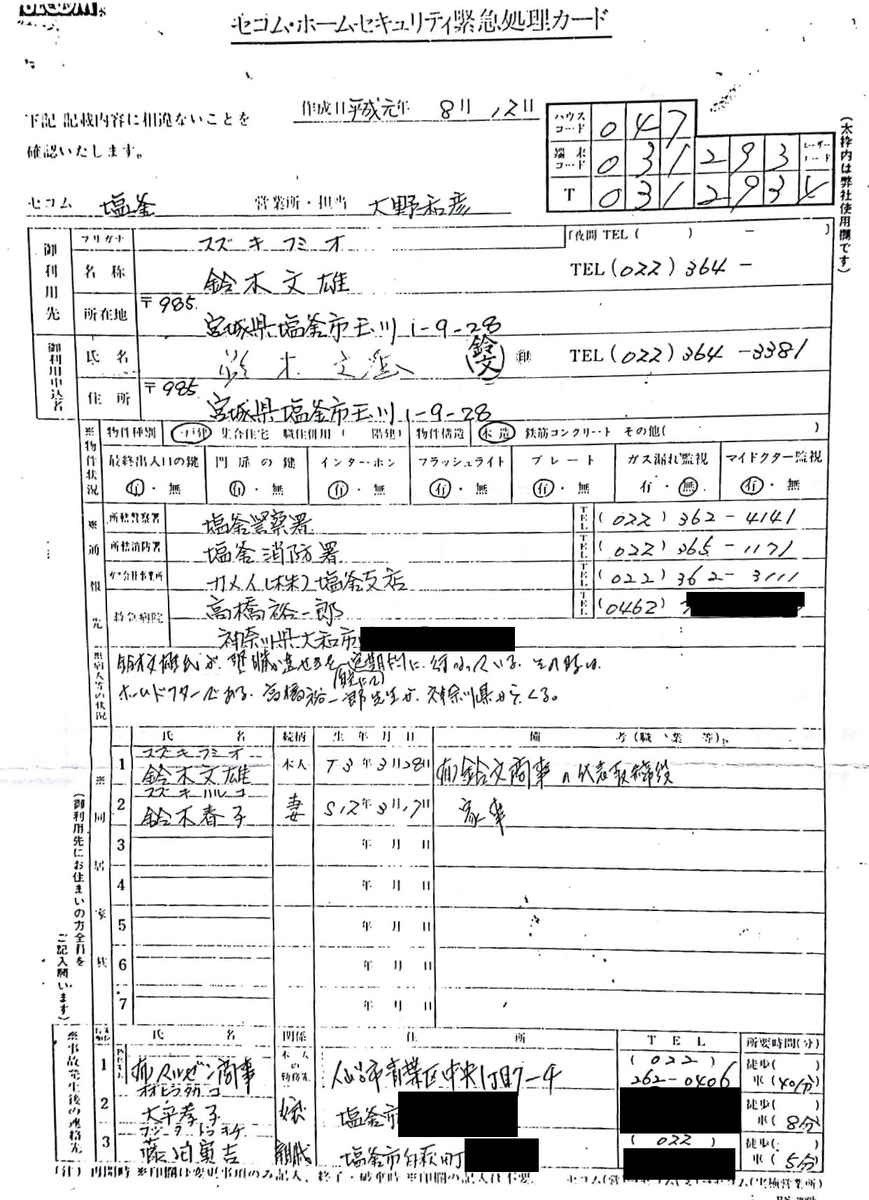 SECOM
セコム・ホームセキュリティ緊急処理カード
作成日 平成元年 8月 12日
下記 記載内容に相違ないことを
確認いたします。
ハウスコード 0 4 7
端末コード 0 3 1 2 9 3
T 0 3 1 2 9 3
(太枠内は弊社使用欄です)
セコム 塩釜 営業所・担当 大野和彦
御利用先
フリガナ スズキフミオ 夜間 TEL ( ) ―
名称 鈴木文雄 TEL (022) 364 ―
所在地 〒985 宮城県塩釜市玉川1-9-28
御利用申込者
氏名 鈴木文雄 印 TEL (022) 364 ― 3381
住所 〒985 宮城県塩釜市玉川1-9-28
※物件状況
物件種別 一戸建 集合住宅 職住併用 ( 階建) 物件構造 木造 鉄筋コンクリート その他( )
最終出入口の鍵 門扉の鍵 インターホン フラッシュライト プレート ガス漏れ監視 マイドクター監視
有・無 有・無 有・無 有・無 有・無 有・無 有・無
※通報先
所轄警察署 塩釜警察署 TEL (022) 362-4141
所轄消防署 塩釜消防署 TEL (022) 365-1171
ガス会社事業所 カメイ(株)塩釜支店 TEL (022) 362-3111
救急病院 高橋裕一郎 TEL (0462)
神奈川県大和市
※病人等の状況
ホームドクターである高橋裕一郎先生が神奈川県からくる。
※同居家族
(御利用先にお住まいの方全員をご記入願います)
氏名 続柄 生年月日 備考(職業等)
スズキフミオ
1 鈴木文雄 本人 T3年3月28日 (有)鈴文商事の代表取締役
スズキハルコ
2 鈴木春子 妻 S12年3月17日 家事
3 年 月 日
4 年 月 日
5 年 月 日
6 年 月 日
7 年 月 日
※事故発生後の連絡先
氏名 関係 住所 TEL 所要時間(分)
1 (有)マルゼン商事 本人の勤務先 仙台市青葉区中央1丁目7-4 (022) 262-0406 徒歩( ) 車(40分)
オオヒラタカコ
2 大平孝子 娘 塩釜市 徒歩( ) 車(8分)
3 寅吉 塩釜市 町 (022) 徒歩( ) 車(5分)
(注) 再開時※印欄は変更事項のみ記入、終了・破棄時※印欄の記入は不要。